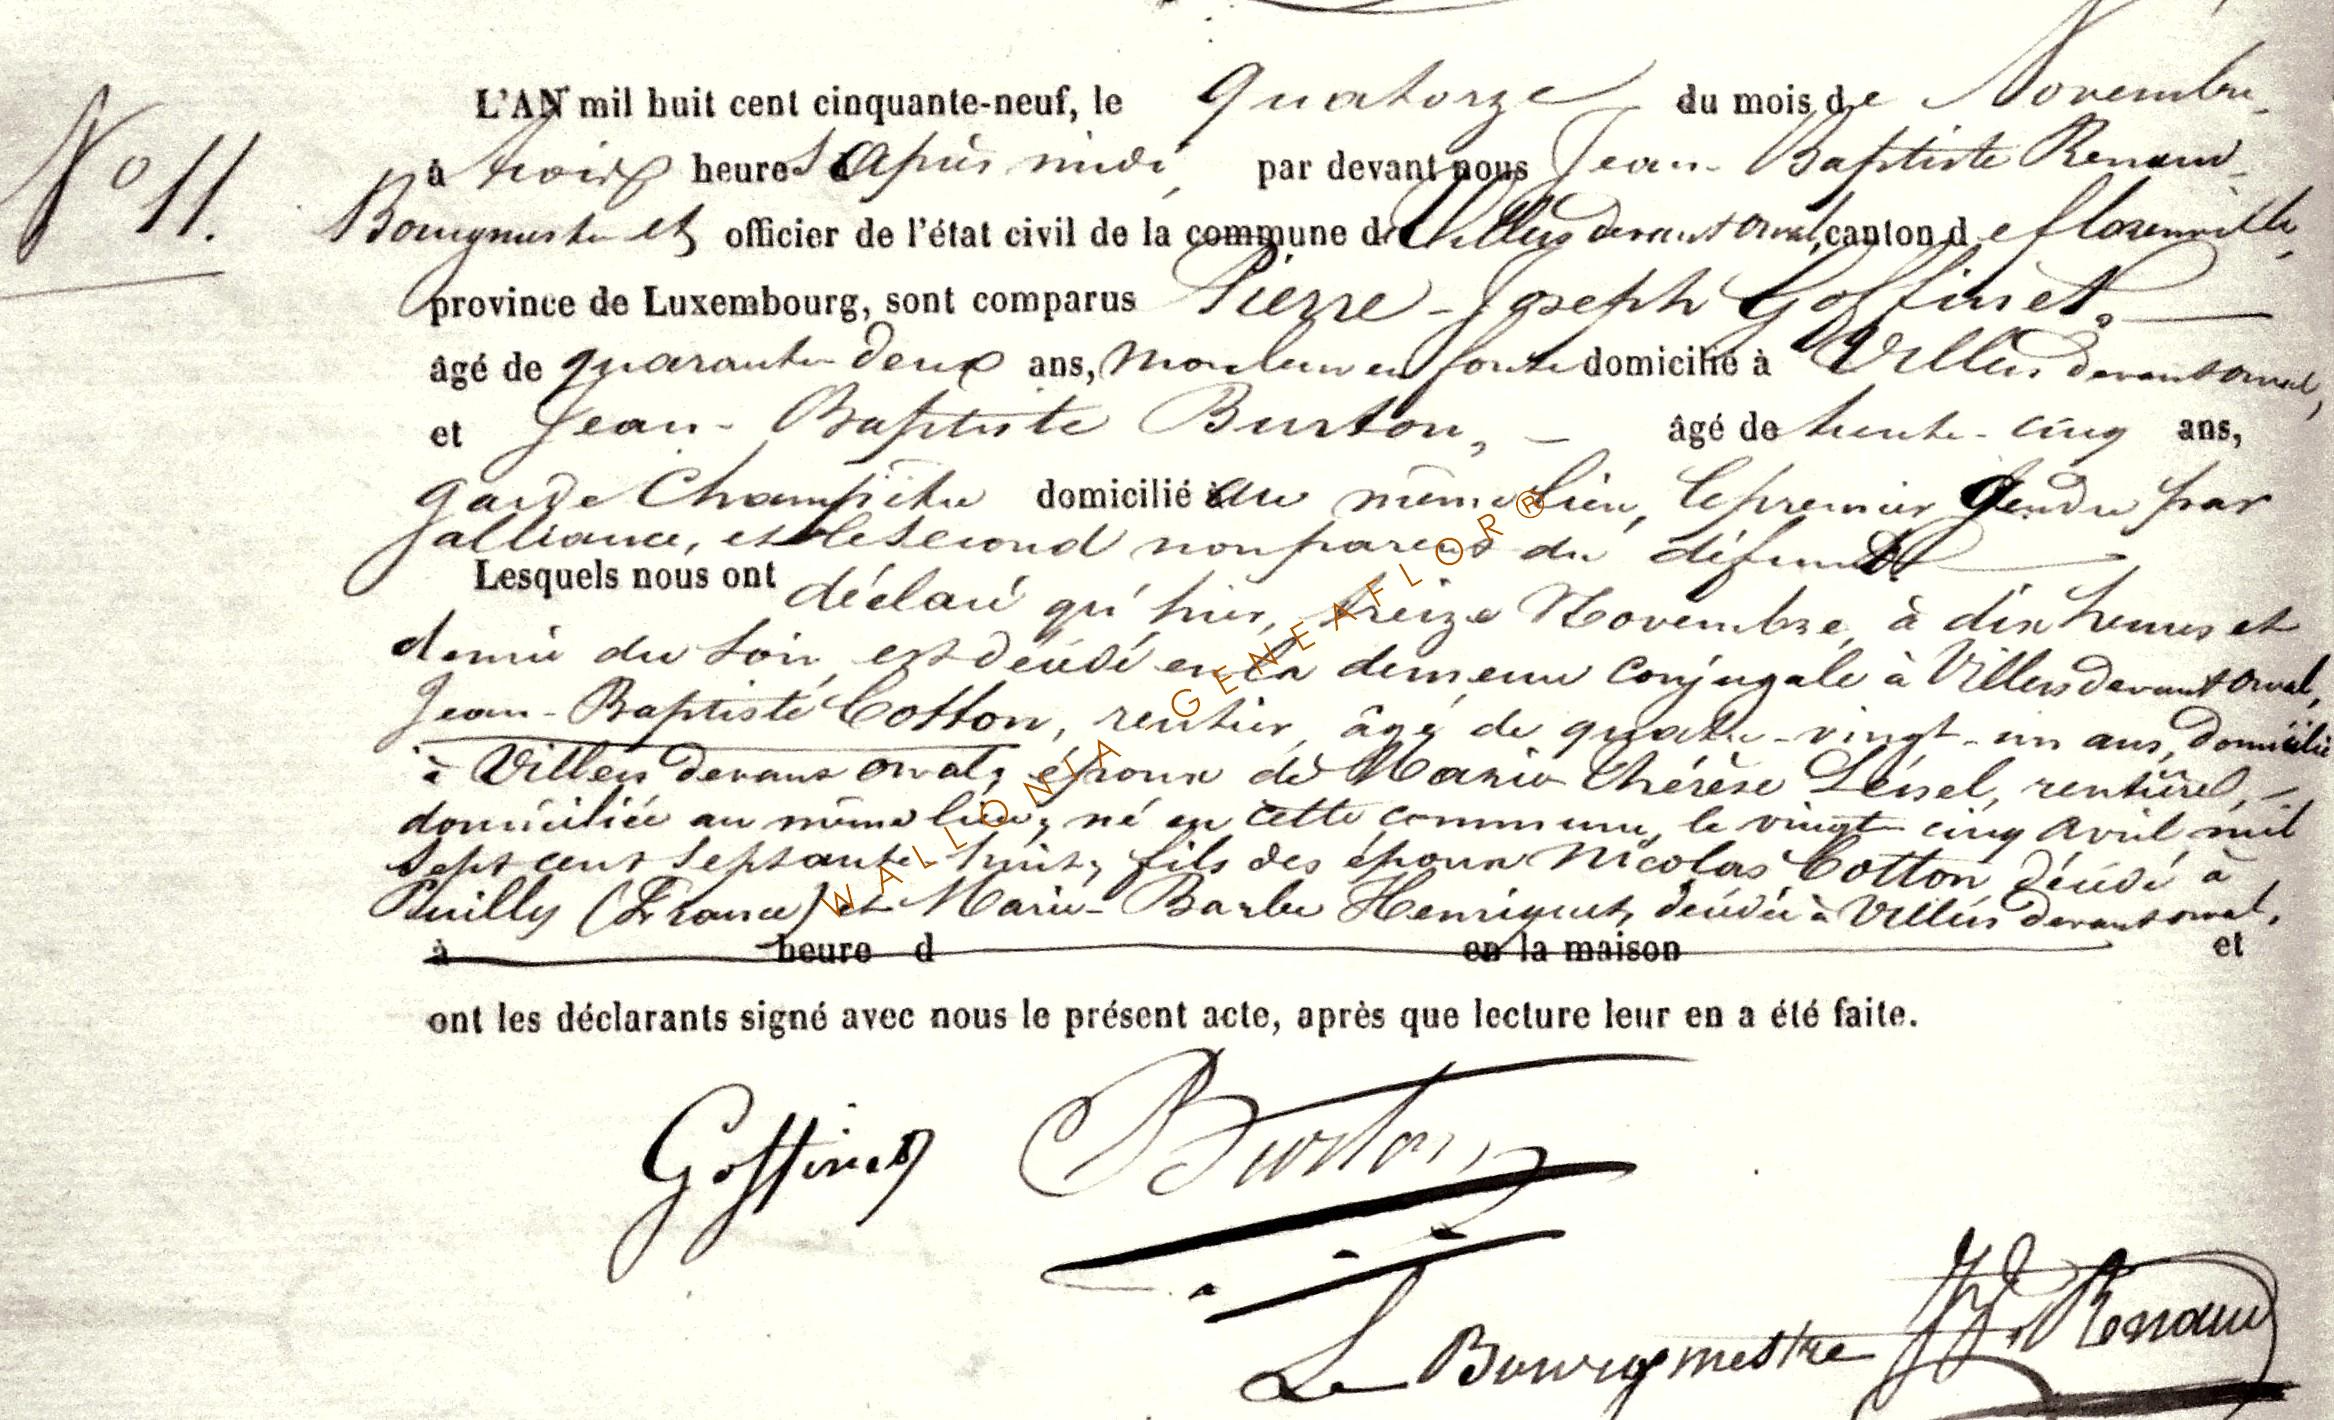 N° 11.
L'AN mil huit cent cinquante-neuf, le quatorze du mois de Novembre
à trois heures d'après midi, par devant nous Jean-Baptiste Renauld
Bourgmestre et officier de l'état civil de la commune de Villers devant Orval, canton de florenville,
province de Luxembourg, sont comparus Pierre-Joseph Goffinet,
âgé de quarante deux ans, mouleur en fonte domicilié à Villers devant orval,
et Jean-Baptiste Burton, âgé de trente-cinq ans,
garde Champêtre domicilié au même lieu, le premier gendre par
alliance, et le second non parent du défunt
Lesquels nous ont déclaré qu'hier, treize Novembre, à dix heures et
demie du soir, est décédé en la demeure conjugale à Villers devant orval,
Jean-Baptiste Cotton, rentier, âgé de quatre-vingt-un ans, domicilié
à Villers devant orval, époux de Marie Thérèse rentière,
domiciliée au même lieu, né en cette commune, le vingt cinq avril mil
sept cent septante huit, fils des époux Nicolas Cotton décédé à
Puilly (France) et Marie-Barbe Henriquet, décédée à Villers devant orval,
à heure d en la maison et
ont les déclarants signé avec nous le présent acte, après que lecture leur en a été faite.
Goffinet Burton
Le Bourgmestre Renauld
WALLONIA GENEAFLOR®